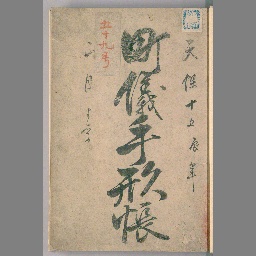 天保十五辰年
町儀手形帳
二月
五十九号